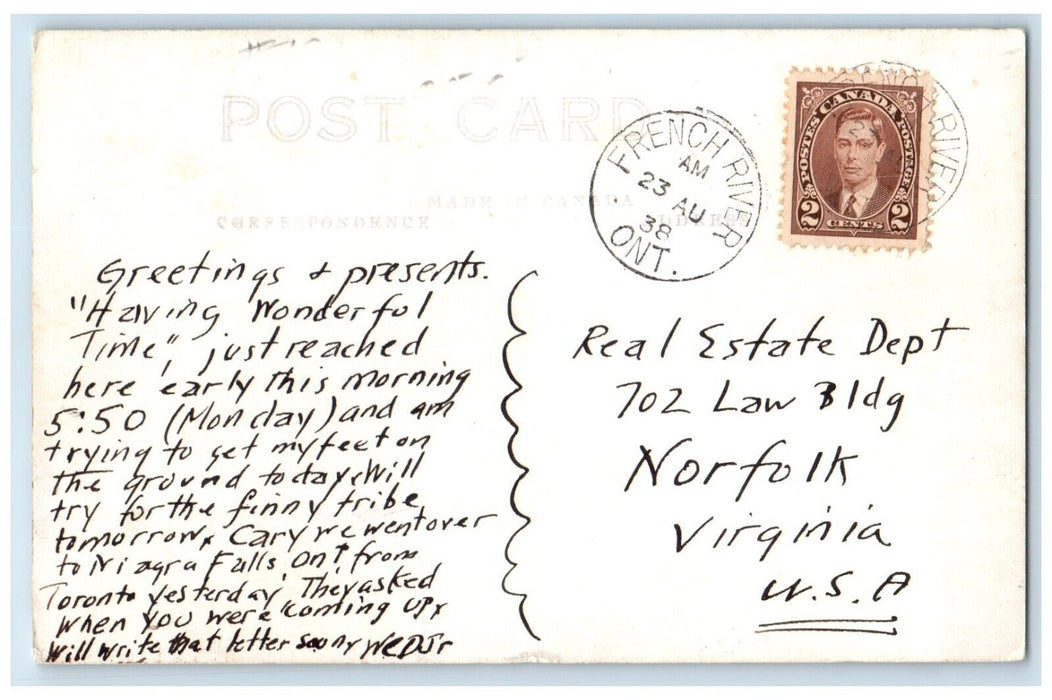 POST CARD
MADE IN CANADA
CORRESPONDENCE
ADDRESS
FRENCH RIVER
AM
23 AU
38
ONT.
FRENCH RIVER
POSTES CANADA POSTAGE
2 CENTS 2
Greetings & presents.
"Having Wonderful
Time", just reached
here early this morning
5:50 (Monday) and am
trying to get my feet on
the ground today, Will
try for the finny tribe
tomorrow, Cary we went over
to Niagra Falls, Ont, from
Toronto yesterday, They asked
when you were coming up,
Will write that letter soon, WEDJr
Real Estate Dept
702 Law Bldg
Norfolk
Virginia
U.S.A